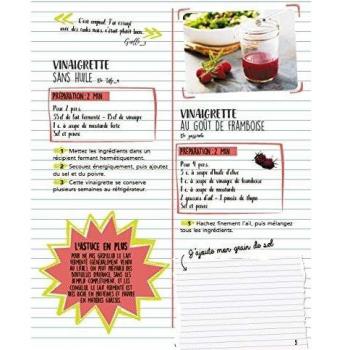 C'est original ! J'ai essayé
avec des radis noirs, c'était plutôt bon.
Gaëlle_s
VINAIGRETTE
SANS HUILE
PRÉPARATION : 2 MIN
Pour 2 pers.
35 cl de lait fermenté - 15 cl de vinaigre
1 c. à soupe de moutarde forte
Sel et poivre
1 Mettez les ingrédients dans un
récipient fermant hermétiquement.
2 Secouez énergiquement, puis ajoutez
du sel et du poivre.
3 Cette vinaigrette se conserve
plusieurs semaines au réfrigérateur.
L'ASTUCE EN PLUS
POUR NE PAS GASPILLER LE LAIT
FERMENTÉ (GÉNÉRALEMENT VENDU
AU LITRE), ON PEUT PRÉPARER DES
BOUTEILLES D'AVANCE, SANS LES
REMPLIR COMPLÈTEMENT, ET LES
CONGELER. LE LAIT FERMENTÉ EST
TRÈS RICHE EN PROTÉINES ET PAUVRE
EN MATIÈRES GRASSES.
VINAIGRETTE
AU GOÛT DE FRAMBOISE
PRÉPARATION : 2 MIN
Pour 4 pers.
5 c. à soupe d'huile d'olive
1 c. à soupe de vinaigre de framboise
1 c. à soupe de moutarde
2 gousses d'ail - 2 pincées de thym
Sel et poivre
1 Hachez finement l'ail, puis mélangez
tous les ingrédients.
J'ajoute mon grain de sel